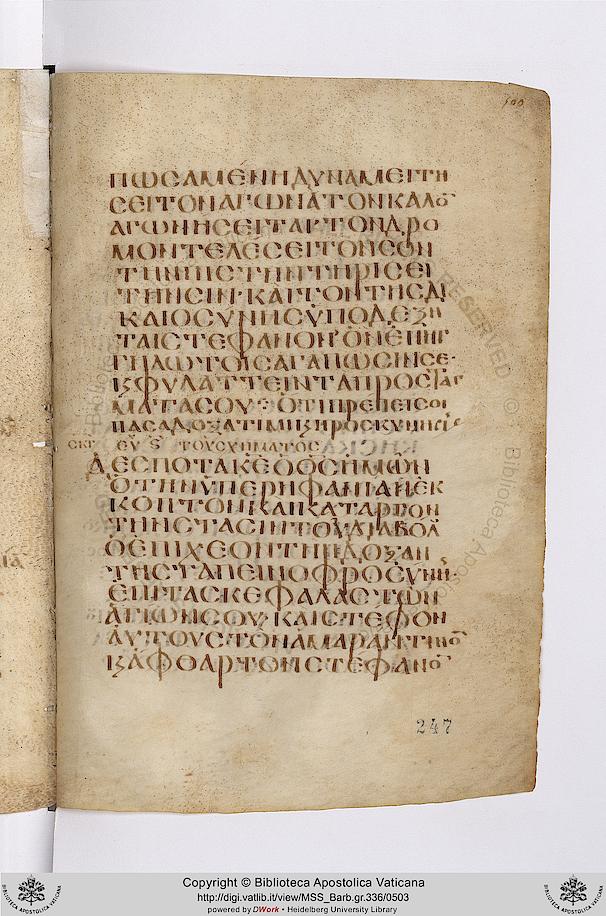 500
ΠΩΣΑΜΕΝΗΔΥΝΑΜΕΙΤΗ
ΣΕΙΤΟΝΑΓΩΝΑΤΟΝΚΑΛΟ
ΑΓΩΝΗΣΕΙΤΑΙΤΟΝΔΡΟ
ΜΟΝΤΕΛΕΣΕΙΤΟΝΣΟΝ
ΤΗΝΠΙΣΤΗΝΤΗΡΙΣΕΙ
ΤΗΝΣΙΝ·ΚΑΙΤΟΝΤΗΣΔΙ
ΚΑΙΟΣΥΝΗΣΥΠΟΔΕΞΗ
ΤΑΙΣΤΕΦΑΝΟΝ·ΟΝΕΠΗΓ
ΓΗΛΩΤΟΙΣΑΓΑΠΩΣΙΝΣΕ·
ϗΦΥΛΑΤΤΕΙΝΤΑΠΡΟΣΤΑΓ
ΜΑΤΑΣΟΥ·:ΟΤΙΠΡΕΠΕΙΣΟΙ
ΠΑΣΑΔΟΞΑΤΙΜΙϗΠΡΟΣΚΥΝΗΣΙΣ
ΕΥΧ ΤΟΥΣΧΗΜΑΤΟΣ
ΔΕΣΠΟΤΑΚΕΟΘΣΗΜΩΝ
ΟΤΗΝΥΠΕΡΗΦΑΝΙΑΝΕΚ
ΚΟΠΤΟΝΚΑΙΚΑΤΑΡΓΟΝ
ΤΗΝΣΤΑΣΙΝΤΟΥΔΙΑΒΟΛ
ΟΕΠΙΧΕΟΝΤΗΝΔΟΞΑΝ
ΤΗΣΤΑΠΕΙΝΟΦΡΟΣΥΝΗΣ
ΕΠΙΤΑΣΚΕΦΑΛΑΣΤΩΝ
ΑΓΙΩΝΣΟΥ·ΚΑΙΣΤΕΦΟΝ
ΑΥΤΟΥΣΤΟΝΑΜΑΡΑΝΤΙΝΟ
ϗΑΦΘΑΡΤΟΝΣΤΕΦΑΝΟ
247
RESERVED © Biblioteca Apostolica
Copyright © Biblioteca Apostolica Vaticana
http://digi.vatlib.it/view/MSS_Barb.gr.336/0503
powered by DWork • Heidelberg University Library